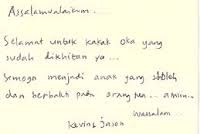 Assalamualaikum...
Selamat untuk kakak Oka yang
sudah dikhitan ya...
Semoga menjadi anak yang sholeh
dan berbakti pada orang tua... amin...
wassalam
Kevin & Jason